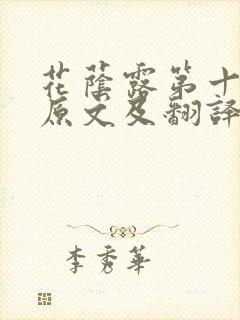 花蔭露第十
原文及翻譯
李秀華